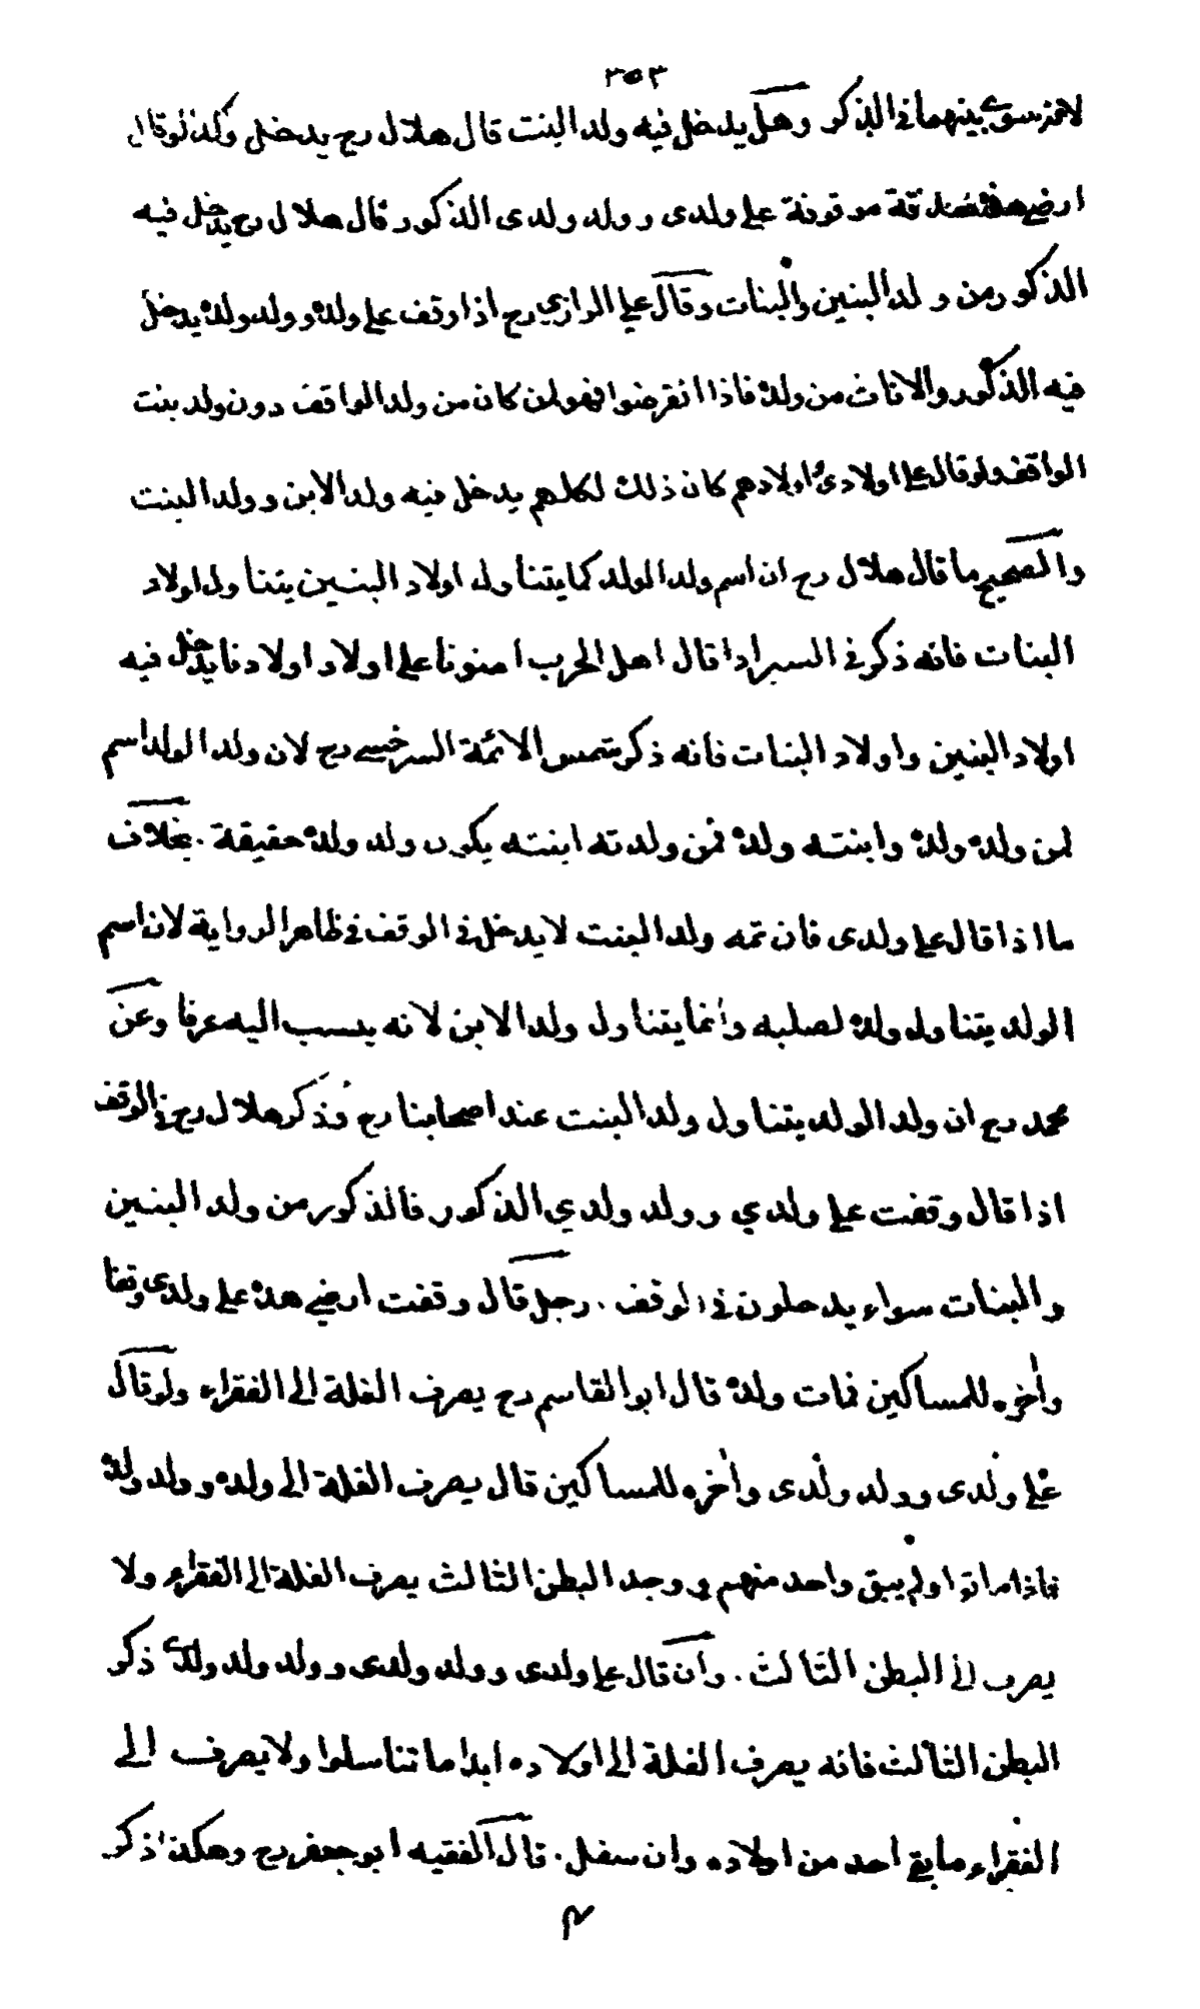 ٣٥٣
لانه سوى بينهما فى الذكر وهل يدخل فيه ولد البنت قال هلال رح يدخل وكذا لو قال
ارضى هذه صدقة موقوفة على ولدى وولد ولدى الذكور قال هلال رح يدخل فيه
الذكور من ولد البنين والبنات وقال على الرازي رح اذا وقف على ولده وولد ولده يدخل
فيه الذكور والاناث من ولده فاذا انقرضوا فهو لمن كان من ولد الواقف دون ولد بنت
الواقف ولو قال على اولادى واولادهم كان ذلك لكلهم يدخل فيه ولد الابن وولد البنت
والصحيح ما قال هلال رح ان اسم ولد الولد كما يتناول اولاد البنين يتناول اولاد
البنات فانه ذكر فى السير اذا قال اهل الحرب امنونا على اولاد اولادنا يدخل فيه
اولاد البنين واولاد البنات فانه ذكر شمس الائمة السرخسى رح لان ولد الولد اسم
لمن ولده ولده وابنته ولده فمن ولدته ابنته يكون ولد ولده حقيقة . بخلاف
ما اذا قال على ولدى فان ثمه ولد البنت لا يدخل فى الوقف فى ظاهر الرواية لان اسم
الولد يتناول ولده لصلبه وانما يتناول ولد الابن لانه ينسب اليه عرفا وعن
محمد رح ان ولد الولد يتناول ولد البنت عند اصحابنا رح وذكر هلال رح فى الوقف
اذا قال وقفت على ولدي وولد ولدي الذكور فالذكور من ولد البنين
والبنات سواء يدخلون فى الوقف . رجل قال وقفت ارضى هذه على ولدى وقفا
واخره للمساكين فمات ولده قال ابو القاسم رح يصرف الغلة الى الفقراء ولو قال
على ولدى وولد ولدى واخره للمساكين قال يصرف الغلة الى ولده وولد ولده
فاذا ماتوا ولم يبق واحد منهم ووجد البطن الثالث يصرف الغلة الى الفقراء ولا
يصرف الى البطن الثالث . وان قال على ولدى وولد ولدى وولد ولد ولدى ذكر
البطن الثالث فانه يصرف الغلة الى اولاده ابدا ما تناسلوا ولا يصرف الى
الفقراء ما بقى احد من اولاده وان سفل . قال الفقيه ابو جعفر رح وهكذا ذكر